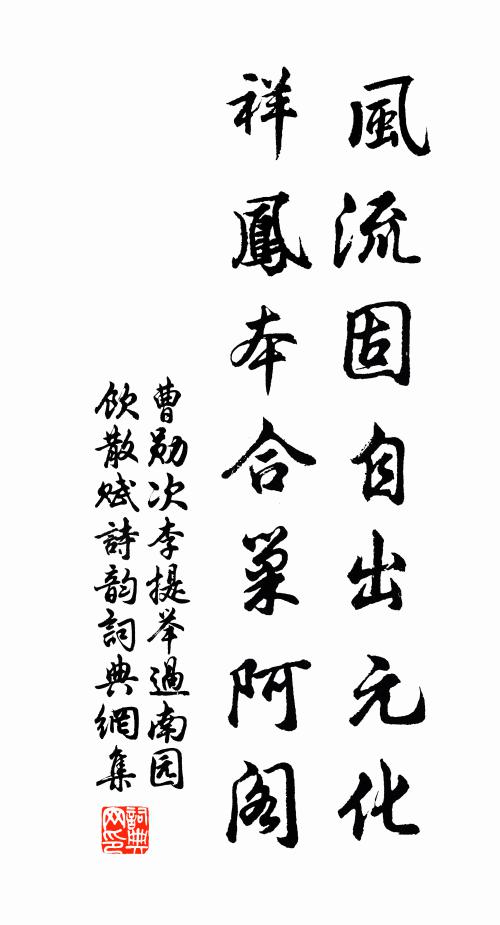 風流固自出元化
祥鳳本合巢阿閣
曹勛次李提举過南园
飲散赋詩韵詞典網集
詞典網印